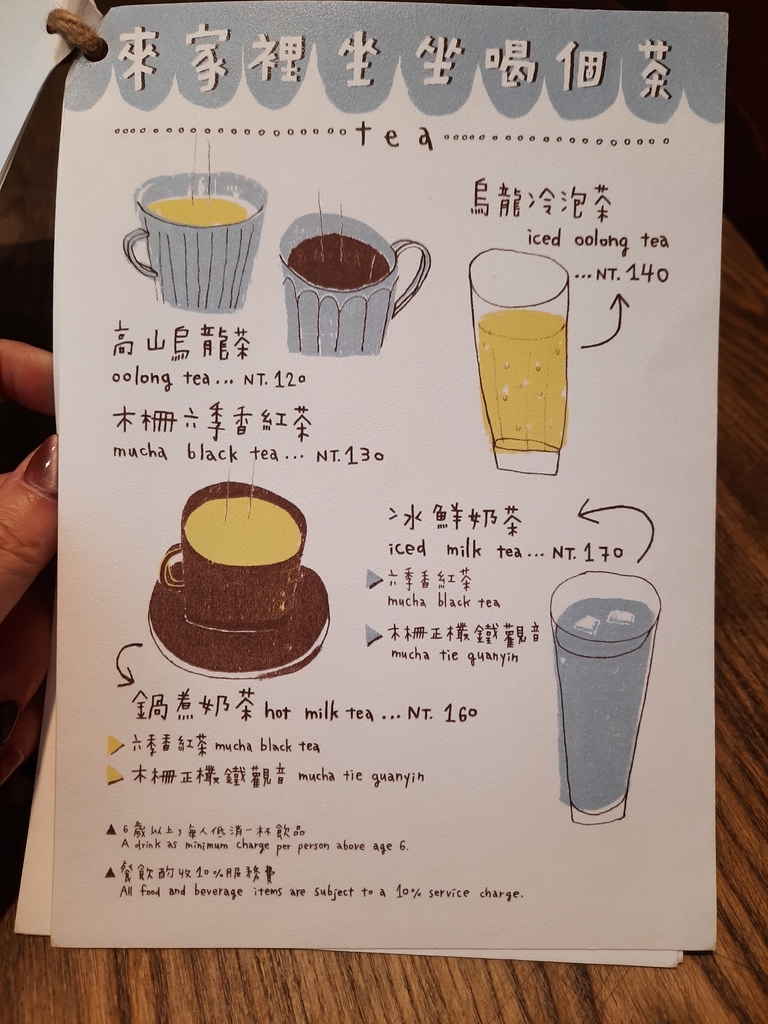 來家裡坐坐喝個茶
tea
烏龍冷泡茶
iced oolong tea
...NT. 140
高山烏龍茶
oolong tea... NT. 120
木柵六季香紅茶
mucha black tea... NT. 130
冰鮮奶茶
iced milk tea... NT. 170
六季香紅茶
mucha black tea
木柵正欉鐵觀音
mucha tie guanyin
鍋煮奶茶 hot milk tea ... NT. 160
六季香紅茶 mucha black tea
木柵正欉鐵觀音 mucha tie guanyin
▲ 6歲以上,每人低消一杯飲品
A drink as minimum charge per person above age 6.
▲ 餐飲酌收10%服務費
All food and beverage items are subject to a 10% service charge.